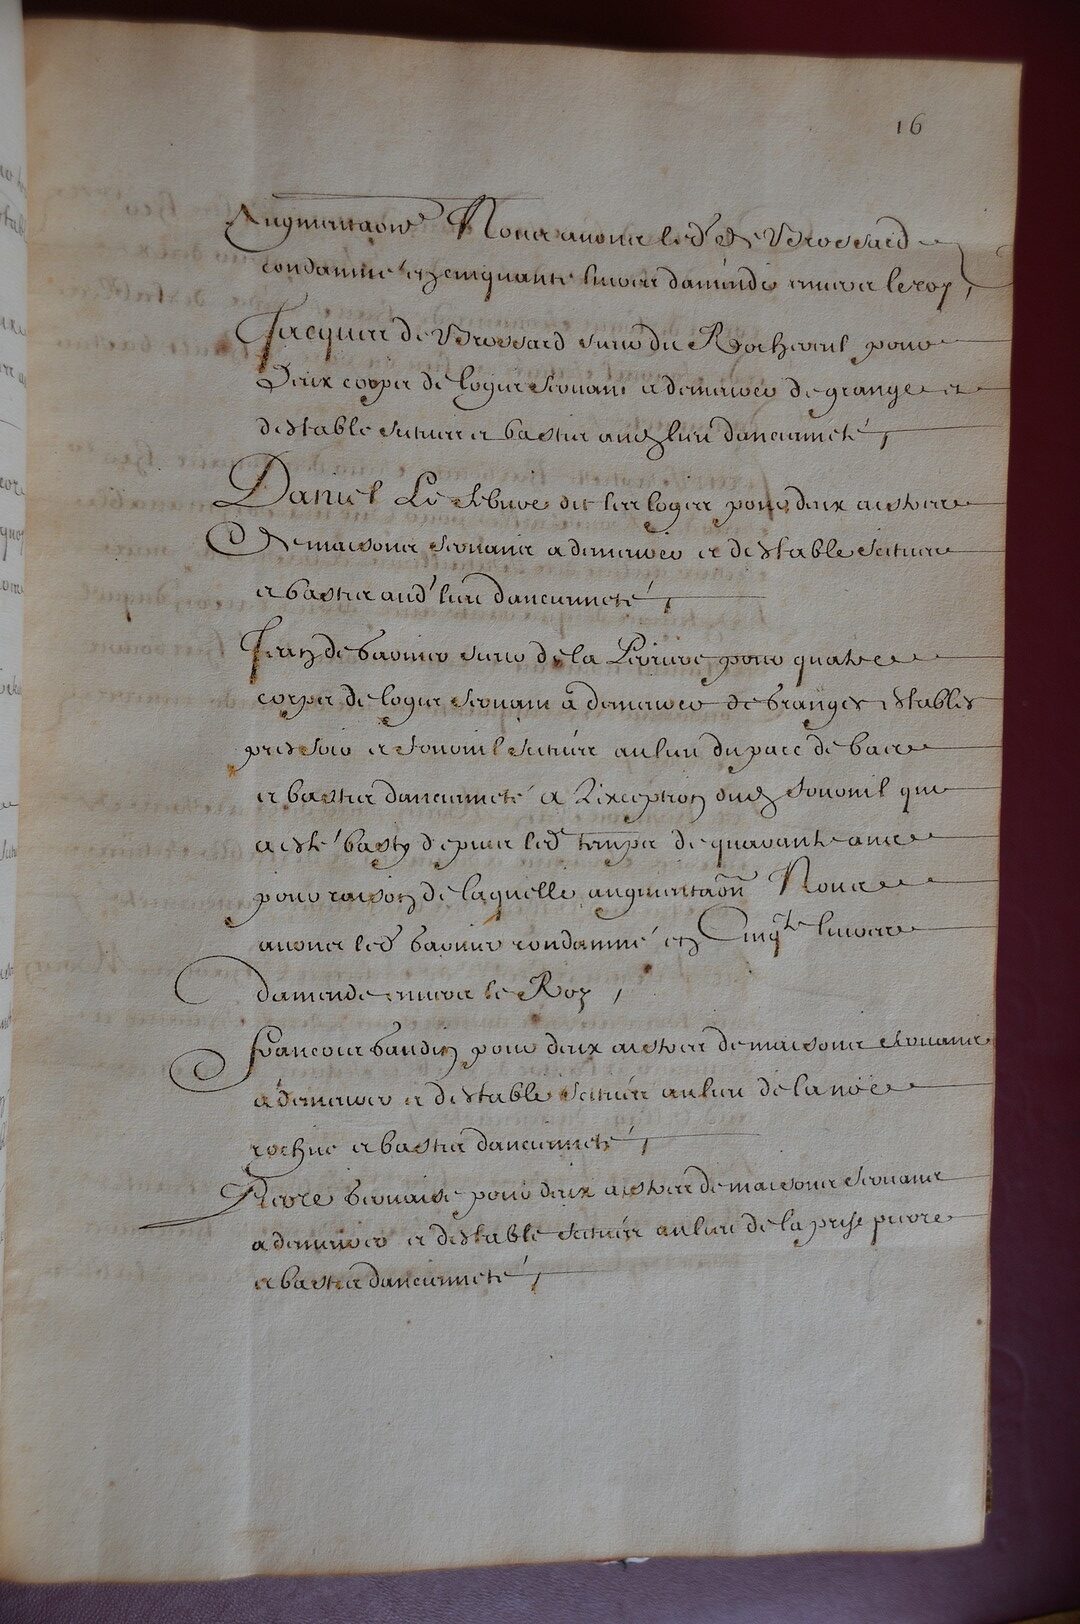 16
Augmentaōn Nous auons led de Brossard
condamné en cinquante liures damende enuers le roy,
Jacques de Brossard sieur du Rocheruil pour
deux corps de logis seruans a demeurer de grange et
destable scituées et basties aud lieu dancienneté,
Daniel Le febure dit les loges pour deux aistres
de maisons seruans a demeurer et destable scituées
et basties aud lieu dancienneté,
Jean de baonier sieur de la pour quatre
corps de logis seruans a demeurer de granges estables
pressoir et fournil scituées au lieu du parc de
et basties dancienneté a Lexception dud fournil qui
a esté basty depuis led temps de quarante ans
pour raison de laquelle augmentaōn Nous
auons led baonier condamné en Cinqte liures
damende enuers le Roy,
francois baudin pour deux aistres de maisons seruans
a demeurer et destable scituées au lieu de la noe
et basties dancienneté,
Pierre pour deux aistres de maisons seruans
a demeurer et destable scituées au lieu de la prise pierre
et basties dancienneté,